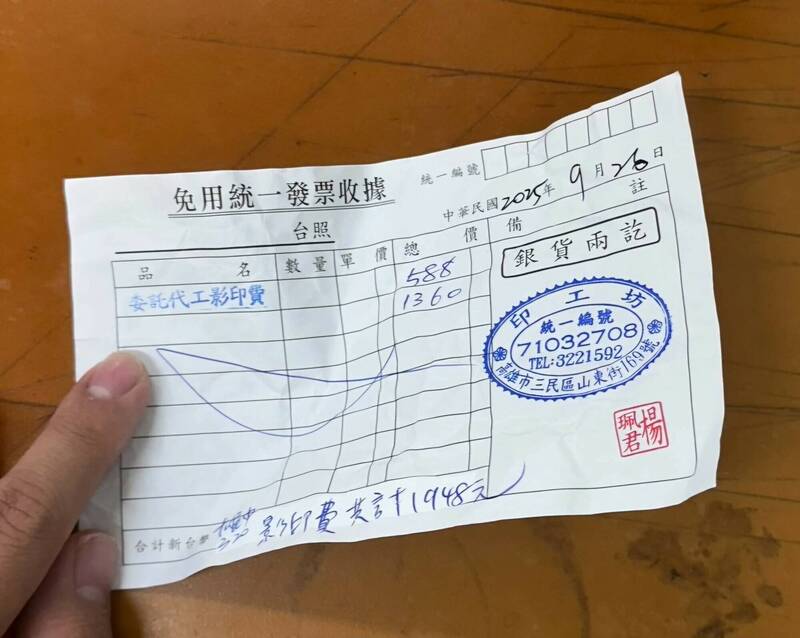 免用統一發票收據
統一編號
台照
中華民國2025年9月26日
品名 數量 單價 總價 備註
委託代工影印費 588
1360
銀貨兩訖
印工坊
統一編號
71032708
TEL:3221592
高雄市三民區山東街169號
楊珮君
合計新台幣 影印費 共計1948元